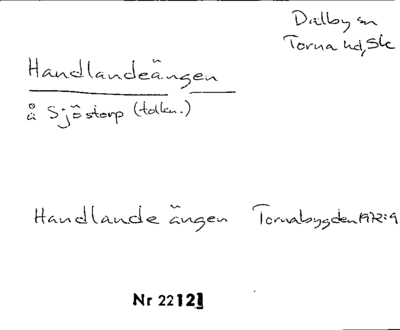 Dalby sn
Torna hd, Sk
Handlandeängen
å Sjöstorp (tolkn.)
Handlande ängen Tornabygden 1972:9
Nr 22121